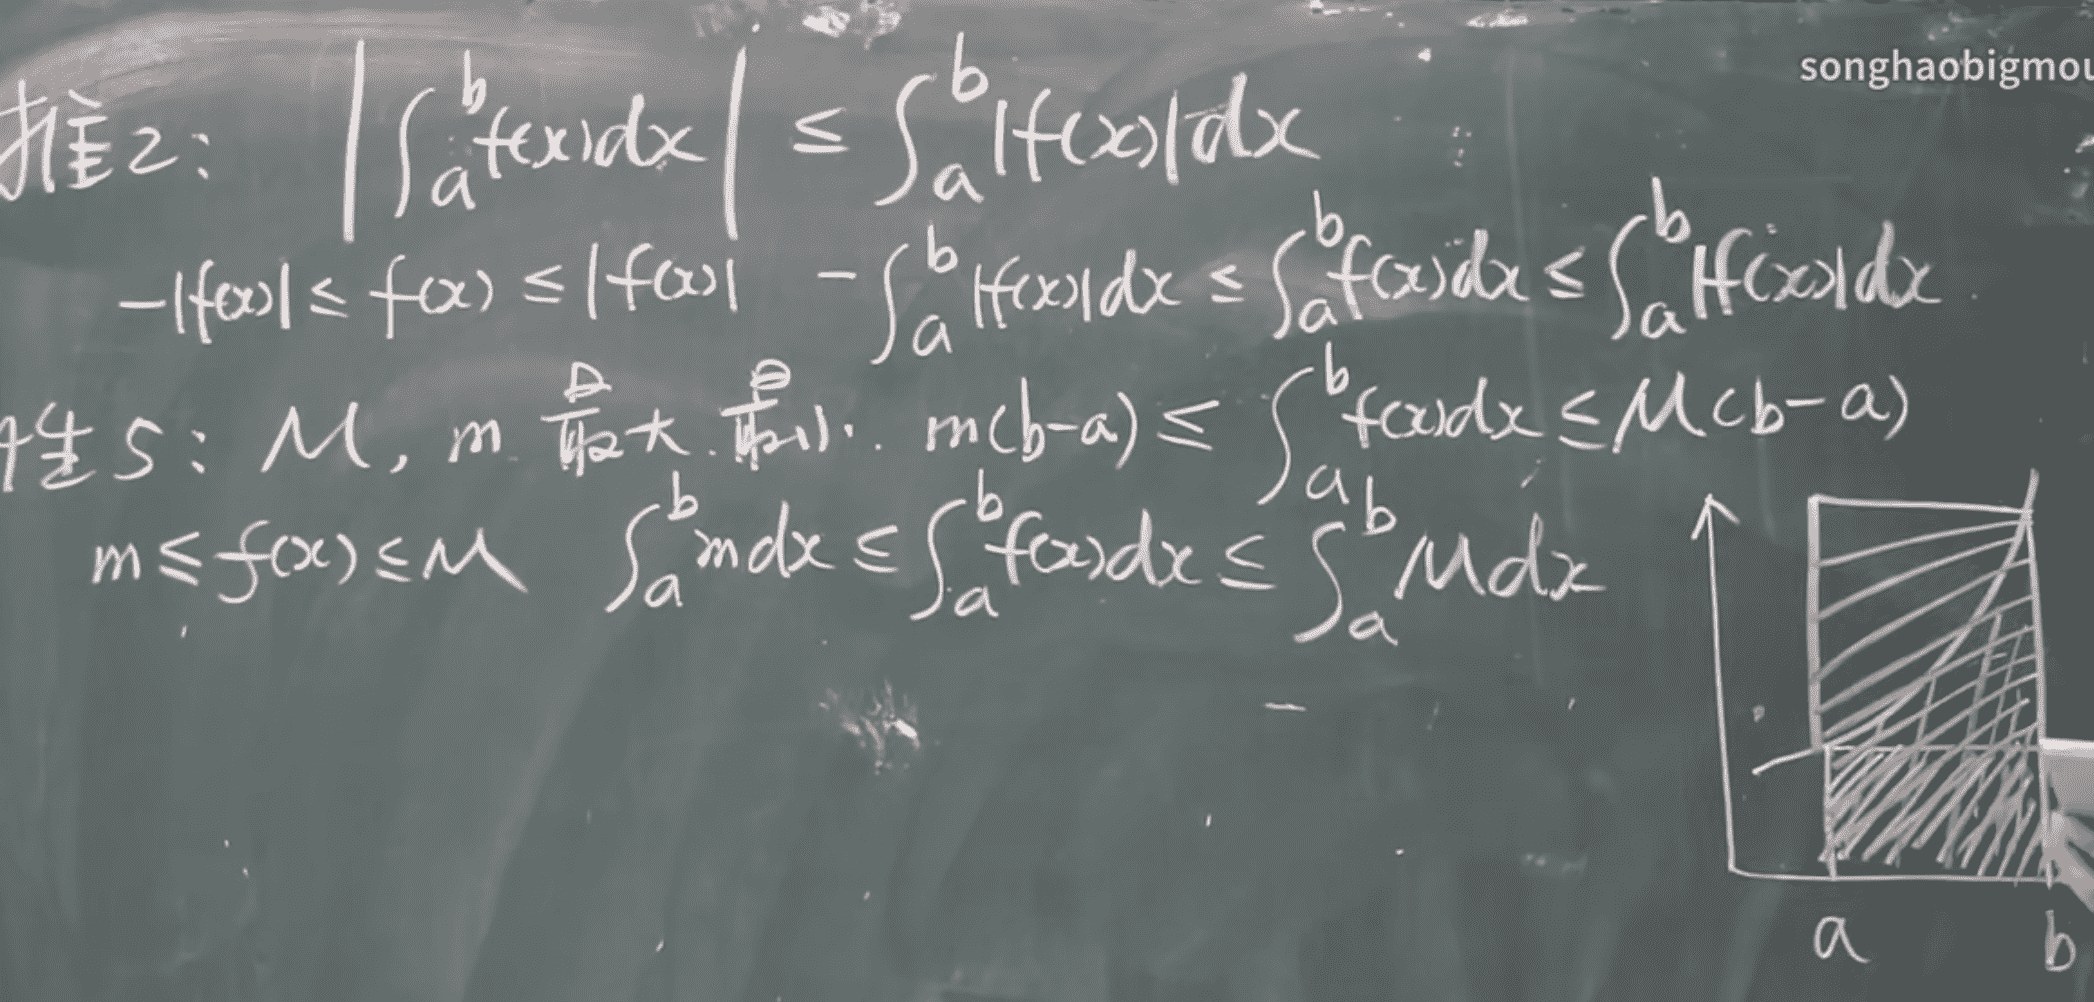 songhaobigmou
推2: |∫_a^b f(x)dx| ≤ ∫_a^b |f(x)|dx
-|f(x)| ≤ f(x) ≤ |f(x)|   -∫_a^b |f(x)|dx ≤ ∫_a^b f(x)dx ≤ ∫_a^b |f(x)|dx
性5: M, m 最大.最小. m(b-a) ≤ ∫_a^b f(x)dx ≤ M(b-a)
m ≤ f(x) ≤ M   ∫_a^b mdx ≤ ∫_a^b f(x)dx ≤ ∫_a^b Mdx
a b